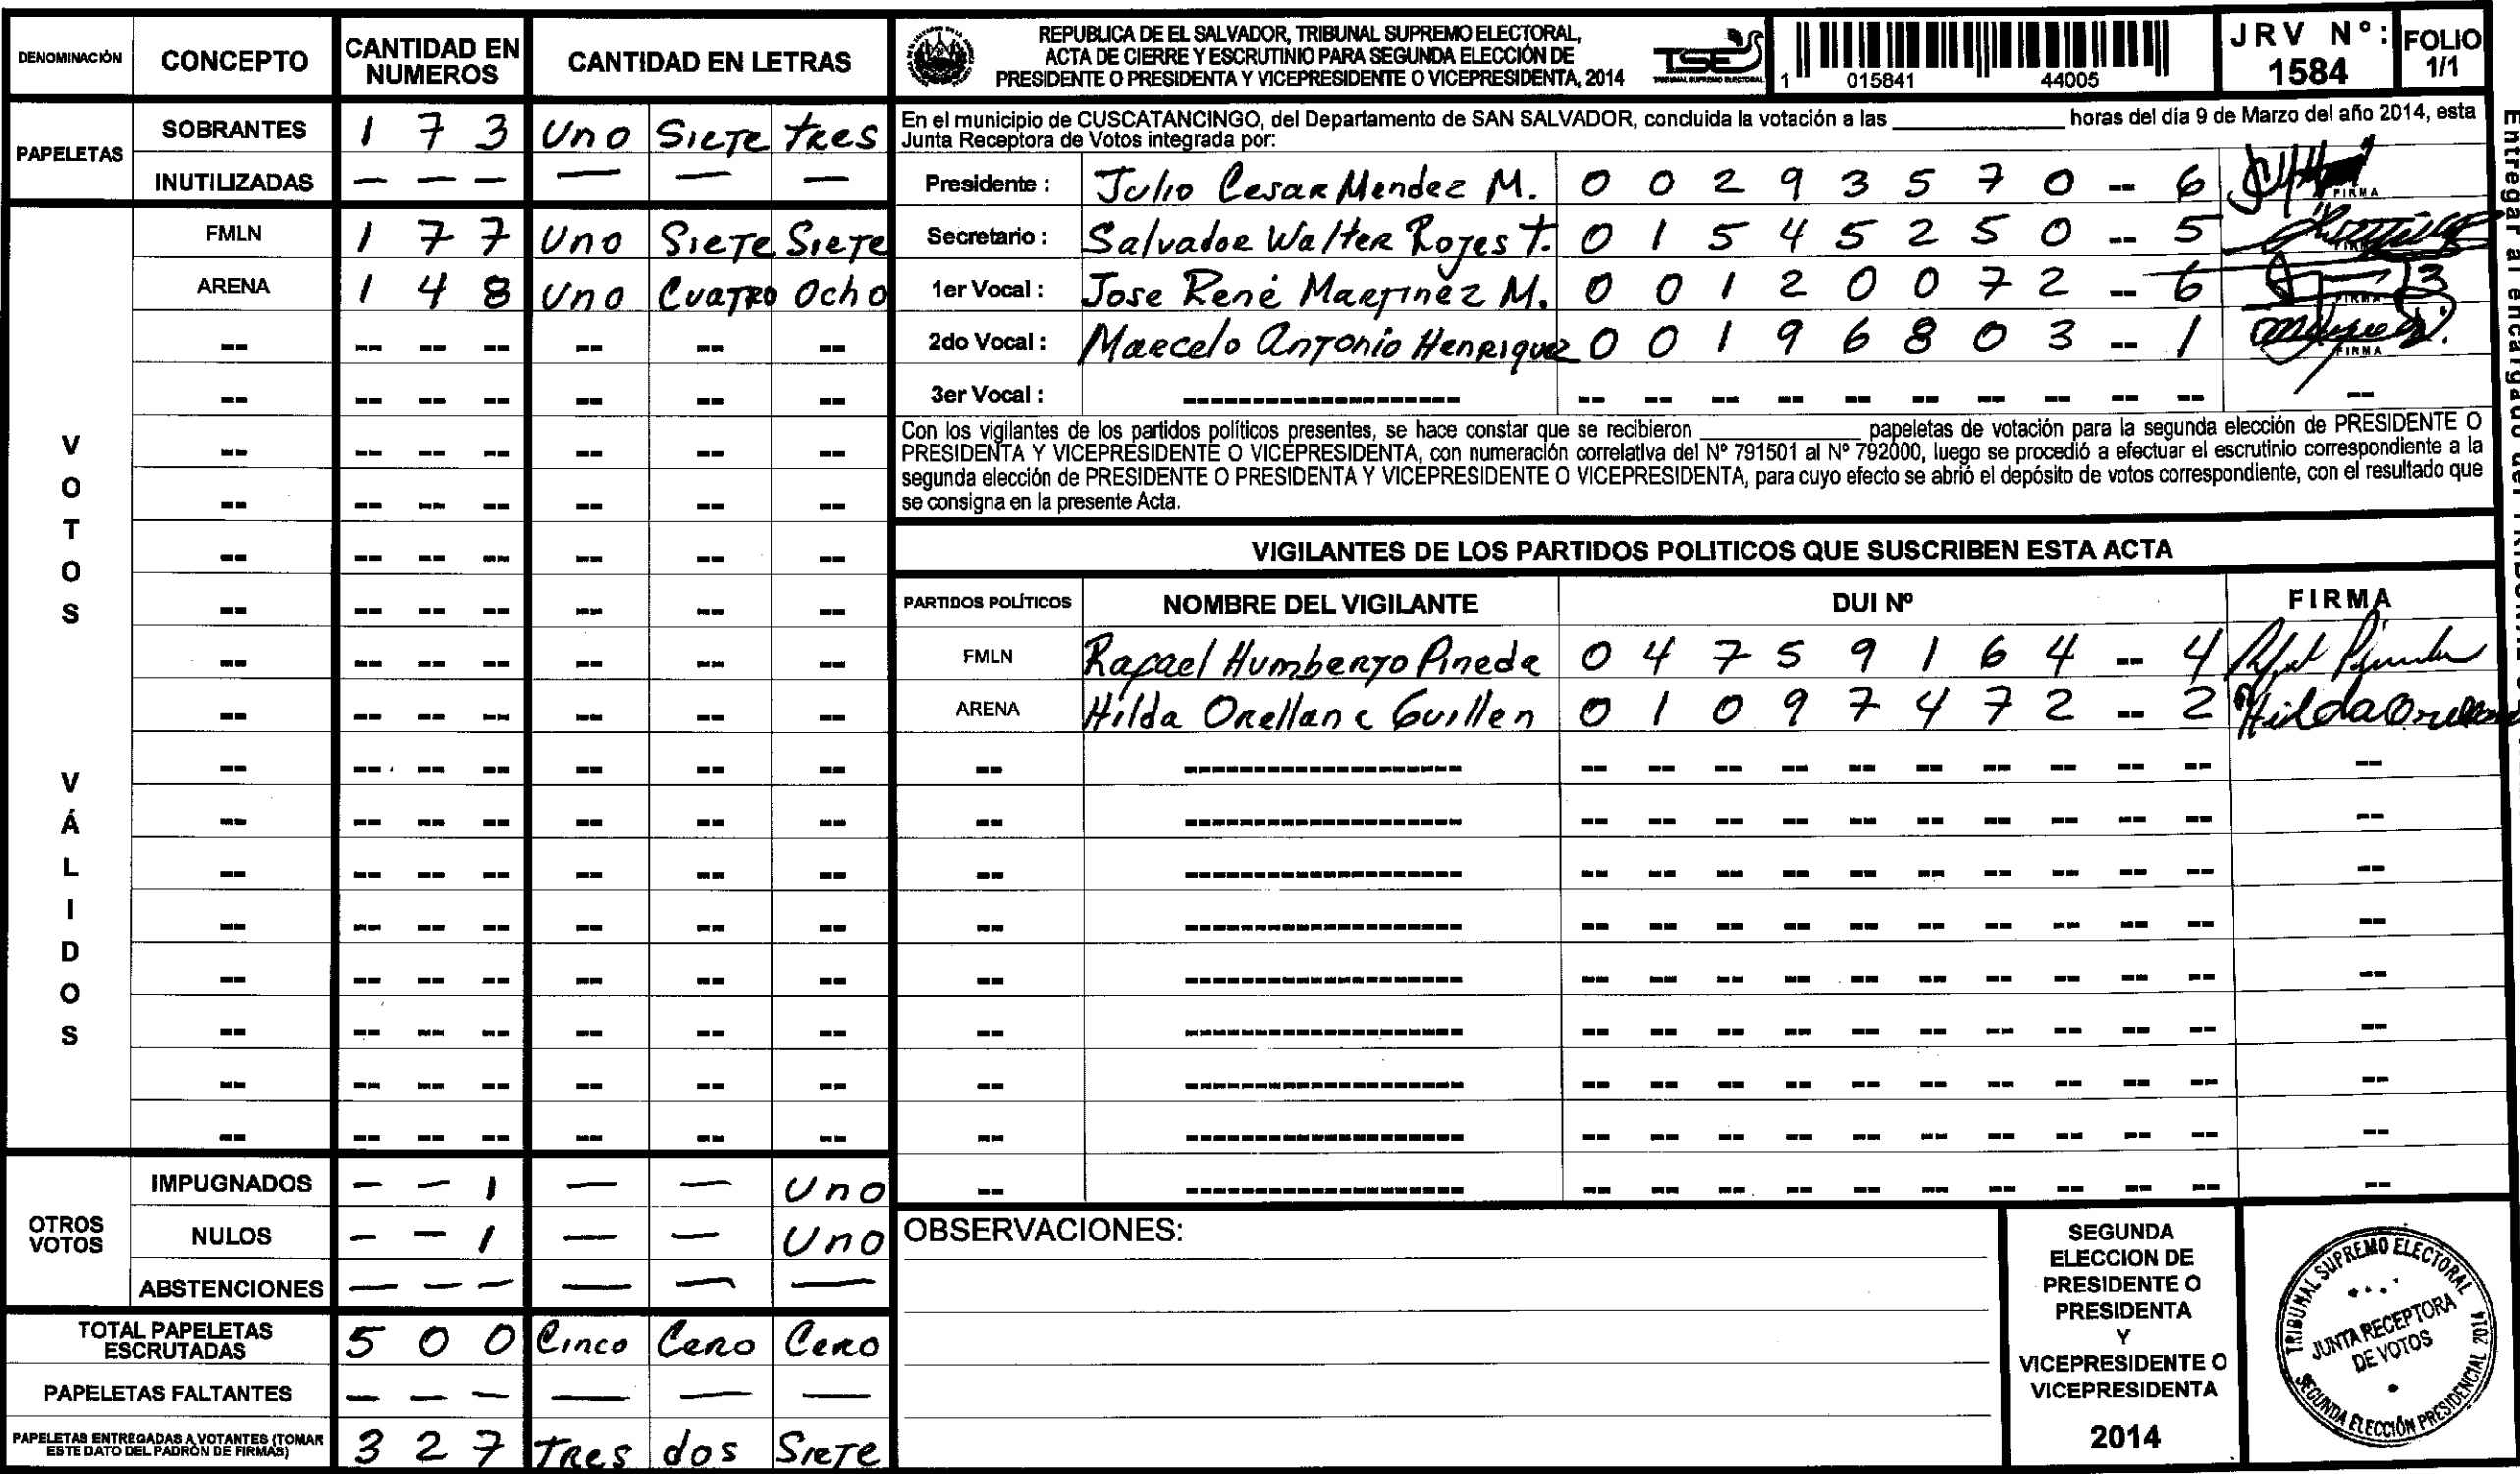 DENOMINACIÓN CONCEPTO CANTIDAD EN NUMEROS CANTIDAD EN LETRAS
PAPELETAS
SOBRANTES 1 7 3 Uno Siete tres
INUTILIZADAS — — — — — —
VOTOS VÁLIDOS
FMLN 1 7 7 Uno Siete Siete
ARENA 1 4 8 Uno Cuatro Ocho
OTROS VOTOS
IMPUGNADOS — — 1 — — Uno
NULOS — — 1 — — Uno
ABSTENCIONES — — — — — —
TOTAL PAPELETAS ESCRUTADAS 5 0 0 Cinco Cero Cero
PAPELETAS FALTANTES — — — — — —
PAPELETAS ENTREGADAS A VOTANTES (TOMAR ESTE DATO DEL PADRÓN DE FIRMAS) 3 2 7 Tres dos Siete
REPUBLICA DE EL SALVADOR, TRIBUNAL SUPREMO ELECTORAL,
ACTA DE CIERRE Y ESCRUTINIO PARA SEGUNDA ELECCIÓN DE
PRESIDENTE O PRESIDENTA Y VICEPRESIDENTE O VICEPRESIDENTA, 2014
TSE
TRIBUNAL SUPREMO ELECTORAL
1 015841 44005
JRV Nº: 1584
FOLIO 1/1
En el municipio de CUSCATANCINGO, del Departamento de SAN SALVADOR, concluida la votación a las ____ horas del día 9 de Marzo del año 2014, esta
Junta Receptora de Votos integrada por:
Presidente : Julio Cesar Mendez M. 0 0 2 9 3 5 7 0 -- 6 FIRMA
Secretario : Salvador Walter Rojes T. 0 1 5 4 5 2 5 0 -- 5
1er Vocal : Jose René Martinez M. 0 0 1 2 0 0 7 2 -- 6 FIRMA
2do Vocal : Marcelo Antonio Henriquez 0 0 1 9 6 8 0 3 -- 1 FIRMA
3er Vocal :
Con los vigilantes de los partidos políticos presentes, se hace constar que se recibieron ____ papeletas de votación para la segunda elección de PRESIDENTE O
PRESIDENTA Y VICEPRESIDENTE O VICEPRESIDENTA, con numeración correlativa del Nº 791501 al Nº 792000, luego se procedió a efectuar el escrutinio correspondiente a la
segunda elección de PRESIDENTE O PRESIDENTA Y VICEPRESIDENTE O VICEPRESIDENTA, para cuyo efecto se abrió el depósito de votos correspondiente, con el resultado que
se consigna en la presente Acta.
VIGILANTES DE LOS PARTIDOS POLITICOS QUE SUSCRIBEN ESTA ACTA
PARTIDOS POLÍTICOS NOMBRE DEL VIGILANTE DUI Nº FIRMA
FMLN Rafael Humberto Pineda 0 4 7 5 9 1 6 4 -- 4
ARENA Hilda Orellana Guillen 0 1 0 9 7 4 7 2 -- 2 Hilda Orellana
OBSERVACIONES:
SEGUNDA
ELECCION DE
PRESIDENTE O
PRESIDENTA
Y
VICEPRESIDENTE O
VICEPRESIDENTA
2014
TRIBUNAL SUPREMO ELECTORAL
JUNTA RECEPTORA
DE VOTOS
SEGUNDA ELECCIÓN PRESIDENCIAL 2014
Entregar al encargado del